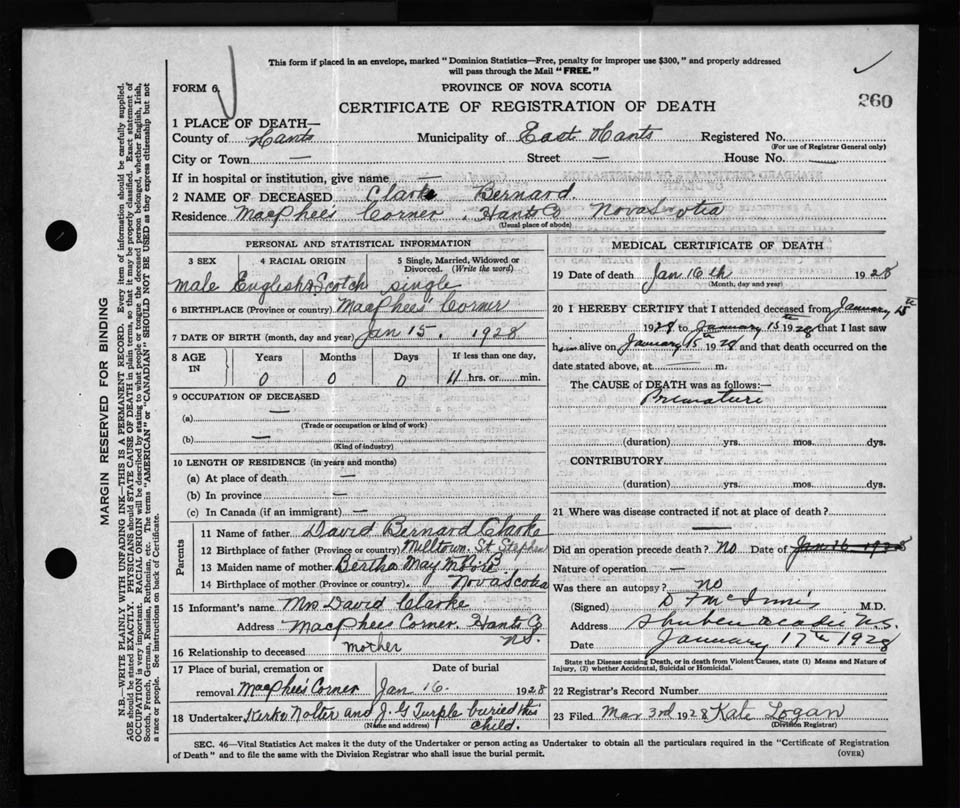 This form if placed in an envelope, marked "Dominion Statistics—Free, penalty for improper use $300," and properly addressed
will pass through the Mail "FREE."
FORM 6.
PROVINCE OF NOVA SCOTIA
CERTIFICATE OF REGISTRATION OF DEATH
260
1 PLACE OF DEATH—
County of Hants Municipality of East Hants Registered No.
(For use of Registrar General only)
City or Town — Street — House No. —
If in hospital or institution, give name —
2 NAME OF DECEASED Clarke Bernard.
Residence MacPhee's Corner, Hants Co Nova Scotia
(Usual place of abode)
PERSONAL AND STATISTICAL INFORMATION
3 SEX 4 RACIAL ORIGIN 5 Single, Married, Widowed or Divorced. (Write the word)
male English & Scotch single
6 BIRTHPLACE (Province or country) MacPhee's Corner
7 DATE OF BIRTH (month, day and year) Jan 15. 1928
8 AGE IN Years Months Days If less than one day,
0 0 0 11 hrs. or min.
9 OCCUPATION OF DECEASED
(a) —
(Trade or occupation or kind of work)
(b) —
(Kind of industry)
10 LENGTH OF RESIDENCE (in years and months)
(a) At place of death —
(b) In province —
(c) In Canada (if an immigrant) —
Parents
11 Name of father David Bernard Clarke
12 Birthplace of father (Province or country) Milltown. St Stephen
13 Maiden name of mother Bertha May
14 Birthplace of mother (Province or country) Nova Scotia
15 Informant's name Mrs David Clarke
Address MacPhees Corner. Hants Co N.S.
16 Relationship to deceased mother
17 Place of burial, cremation or removal MacPhee's Corner Date of burial Jan 16. 1928
18 Undertaker Nolter and J. G Turple buried this child.
(Name and address)
MEDICAL CERTIFICATE OF DEATH
19 Date of death Jan 16th 1928
(Month, day and year)
20 I HEREBY CERTIFY that I attended deceased from January 15th
1928 to January 15th 1928 that I last saw
him alive on January 15th 1928 and that death occurred on the
date stated above, at m.
The CAUSE of DEATH was as follows:—
Premature
(duration) yrs. mos. dys.
CONTRIBUTORY
(duration) yrs. mos. dys.
21 Where was disease contracted if not at place of death?
—
Did an operation precede death? No Date of Jan 16 1928
Nature of operation —
Was there an autopsy? no
(Signed) D F McInnis M.D.
Address Shubenacadie N.S.
Date January 17th 1928
State the Disease causing Death, or in death from Violent Causes, state (1) Means and Nature of
Injury, (2) whether Accidental, Suicidal or Homicidal.
22 Registrar's Record Number
23 Filed Mar 3rd 1928 Kate Logan
(Division Registrar)
SEC. 46—Vital Statistics Act makes it the duty of the Undertaker or person acting as Undertaker to obtain all the particulars required in the "Certificate of Registration
of Death" and to file the same with the Division Registrar who shall issue the burial permit.
(OVER)
MARGIN RESERVED FOR BINDING
N.B.—WRITE PLAINLY WITH UNFADING INK—THIS IS A PERMANENT RECORD. Every item of information should be carefully supplied.
AGE should be stated EXACTLY. PHYSICIANS should STATE CAUSE OF DEATH in plain terms, so that it may be properly classified. Exact statement of
OCCUPATION is very important. RACIAL ORIGIN will be described by stating to what people or tongue the deceased person belonged, whether English, Irish,
Scotch, French, German, Russian, Ruthenian, etc. The terms "AMERICAN" or "CANADIAN" SHOULD NOT BE USED as they express citizenship but not
a race or people. See instructions on back of Certificate.